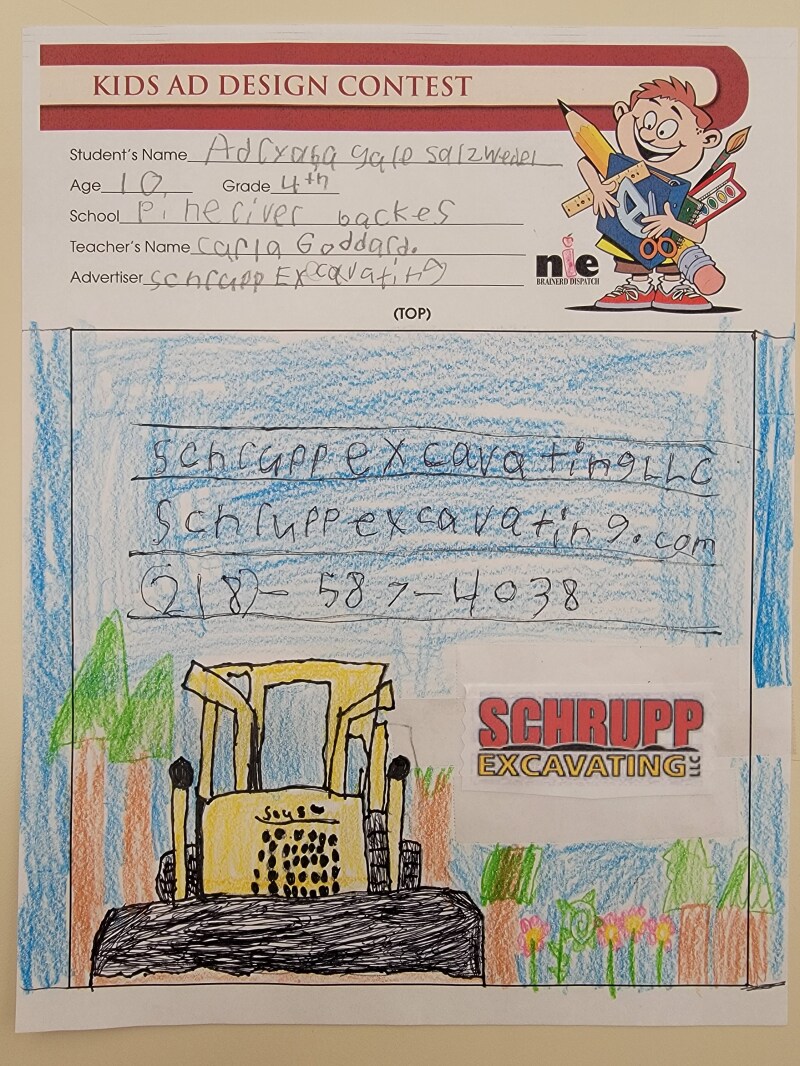 KIDS AD DESIGN CONTEST
Student's Name gale salzwedel
Age 10 Grade 4th
School Pineriver backes
Teacher's Name Carla Goddard.
Advertiser Schrupp Excavating
nie
BRAINERD DISPATCH
(TOP)
Schrupp excavating LLC
Schruppexcavating.com
(218)-587-4038
SCHRUPP
EXCAVATING LLC